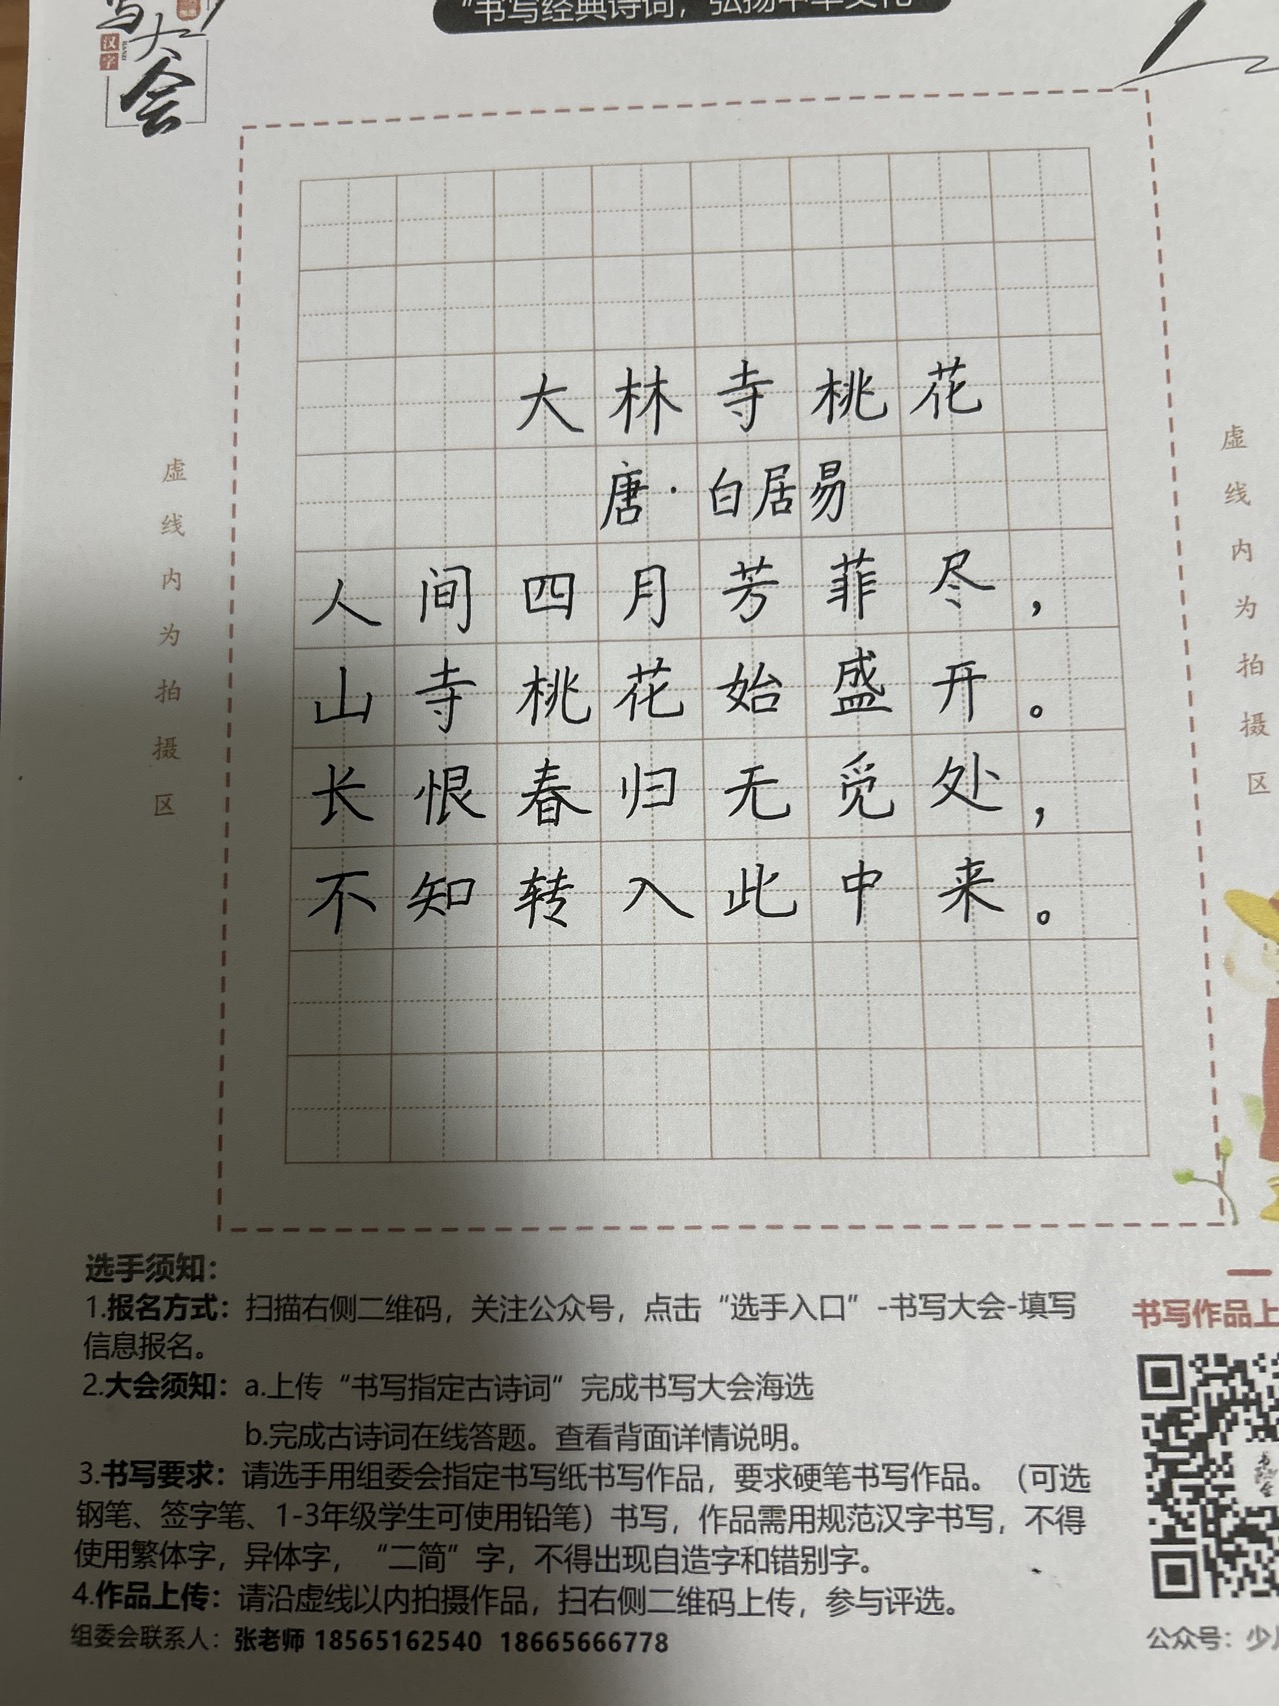 写大会
汉字
“书写经典诗词，弘扬中华文化”
大林寺桃花
唐·白居易
人间四月芳菲尽，
山寺桃花始盛开。
长恨春归无觅处，
不知转入此中来。
虚线内为拍摄区
虚线内为拍摄区
选手须知：
1.报名方式：扫描右侧二维码，关注公众号，点击“选手入口”-书写大会-填写
信息报名。
2.大会须知：a.上传“书写指定古诗词”完成书写大会海选
b.完成古诗词在线答题。查看背面详情说明。
3.书写要求：请选手用组委会指定书写纸书写作品，要求硬笔书写作品。（可选
钢笔、签字笔、1-3年级学生可使用铅笔）书写，作品需用规范汉字书写，不得
使用繁体字，异体字，“二简”字，不得出现自造字和错别字。
4.作品上传：请沿虚线以内拍摄作品，扫右侧二维码上传，参与评选。
组委会联系人：张老师 18565162540 18665666778
书写作品上
公众号：少